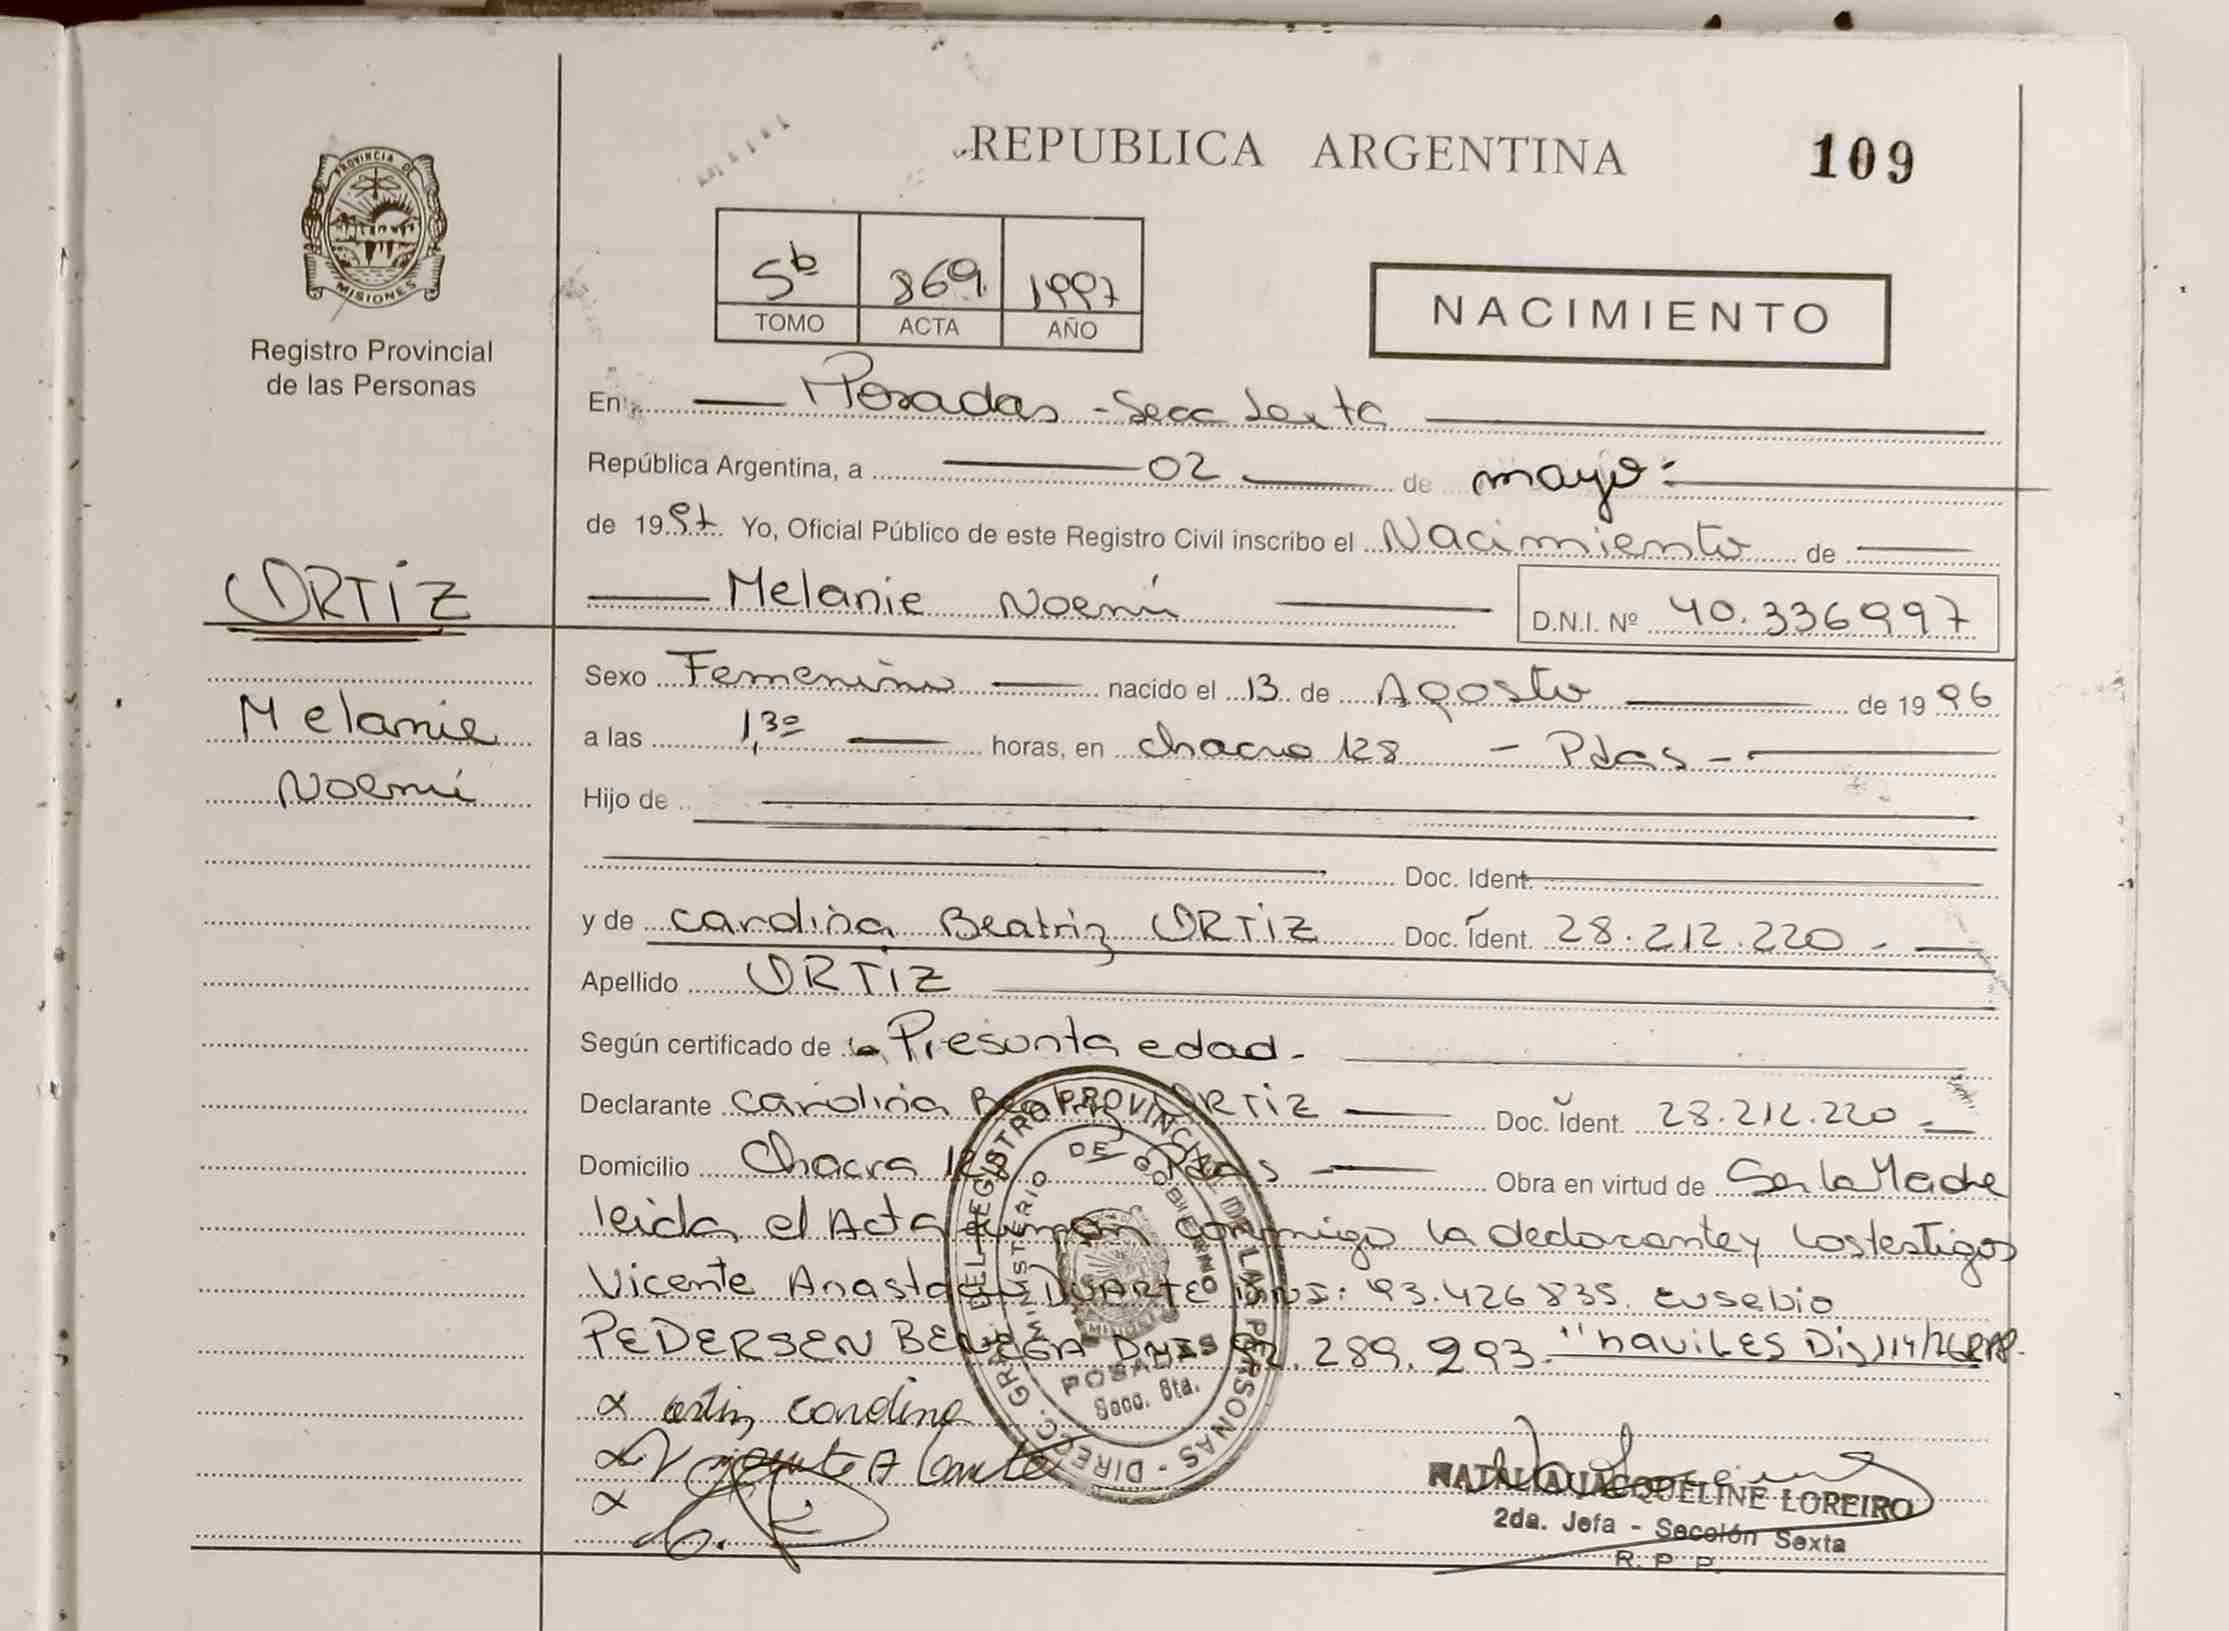 REPUBLICA ARGENTINA 109
PROVINCIA DE MISIONES
Registro Provincial
de las Personas
5b 869 1997
TOMO ACTA AÑO
NACIMIENTO
En Posadas - Secc Sexta
República Argentina, a 02 de mayo
de 1997 Yo, Oficial Público de este Registro Civil inscribo el Nacimiento de
ORTIZ
Melanie Noemí D.N.I. Nº 40.336997
Melanie
Noemí
Sexo Femenino nacido el 13 de Agosto de 1996
a las 1,30 horas, en chacra 128 - Pdas -
Hijo de
Doc. Ident.
y de Carolina Beatriz ORTIZ Doc. Ident. 28.212.220 -
Apellido ORTIZ
Según certificado de la Presunta edad -
Declarante Carolina Beatriz ORTIZ Doc. Ident. 28.212.220 -
Domicilio Chacra 128 Pdas Obra en virtud de Ser la Madre
leida el Acta firman conmigo la declarante y los testigos
Vicente Anastacio DUARTE 93.426835. Eusebio
PEDERSEN 92.289.293.
DIRECC. GRAL. DEL REGISTRO PROVINCIAL DE LAS PERSONAS
MINISTERIO DE GOBIERNO
MISIONES
POSADAS
Secc. 6ta.
NATALIA JACQUELINE LOREIRO
2da. Jefa - Sección Sexta
R. P. P.